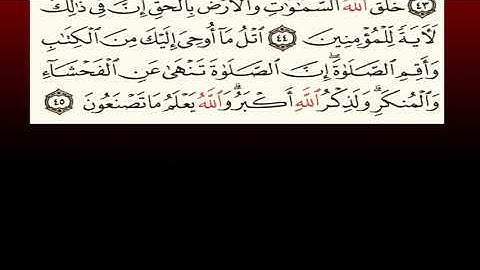 ٤٣ خَلَقَ ٱللَّهُ ٱلسَّمَٰوَٰتِ وَٱلْأَرْضَ بِٱلْحَقِّ إِنَّ فِي ذَٰلِكَ
لَأٓيَةً لِّلْمُؤْمِنِينَ ٤٤ ٱتْلُ مَآ أُوحِيَ إِلَيْكَ مِنَ ٱلْكِتَٰبِ
وَأَقِمِ ٱلصَّلَوٰةَۖ إِنَّ ٱلصَّلَوٰةَ تَنْهَىٰ عَنِ ٱلْفَحْشَآءِ
وَٱلْمُنكَرِۗ وَلَذِكْرُ ٱللَّهِ أَكْبَرُۗ وَٱللَّهُ يَعْلَمُ مَا تَصْنَعُونَ ٤٥